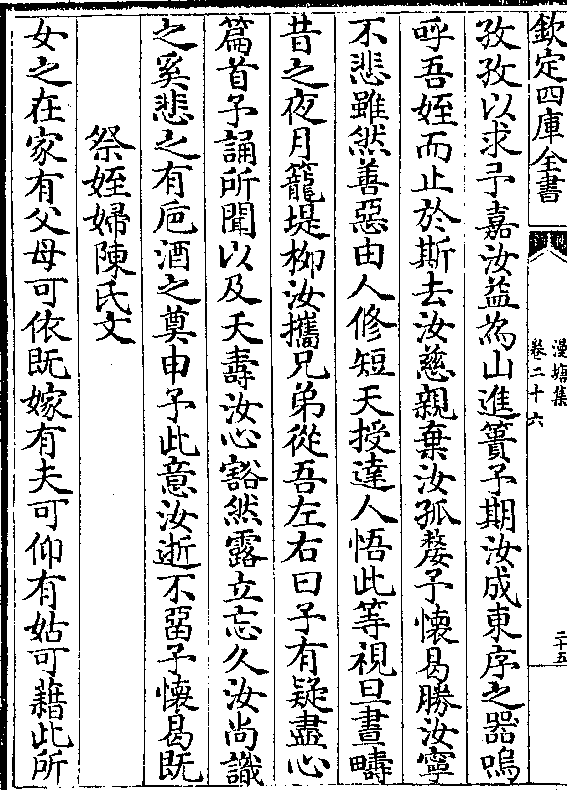 欽定四庫全書
漫塘集
卷二十六
二十五
孜孜以求予嘉汝益為山進簣予期汝成東序之器嗚
呼吾姪而止於斯去汝慈親棄汝孤嫠予懷曷勝汝寧
不悲雖然善惡由人修短天授達人悟此等視旦晝疇
昔之夜月籠堤栁汝攜兄弟從吾左右曰子有疑盡心
篇首予誦所聞以及夭壽汝心豁然露立忘久汝尚識
之奚悲之有巵酒之奠申予此意汝逝不留予懷曷既
祭姪婦陳氏文
女之在家有父母可依既嫁有夫可仰有姑可藉此所